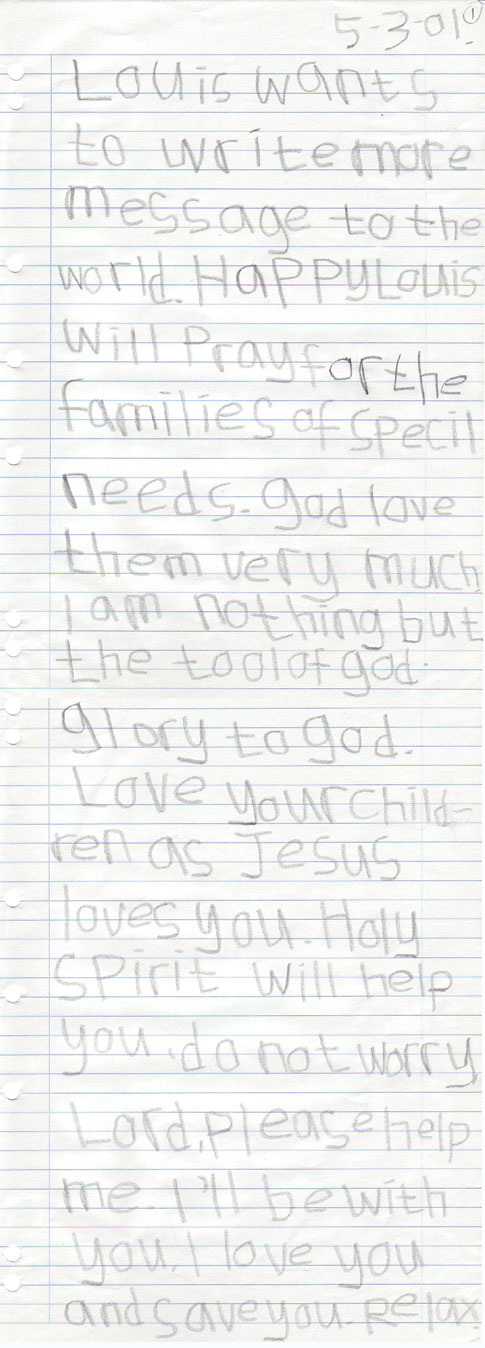 5-3-01! 1
Louis wants
to write more
message to the
world. Happy Louis
Will Pray for the
families of specil
needs. god love
them very much
I am nothing but
the tool of god.
glory to god.
Love your child-
ren as Jesus
loves you. Holy
Spirit will help
you. do not worry
Lord, please help
me. I'll be with
you. I love you
and save you. Relax